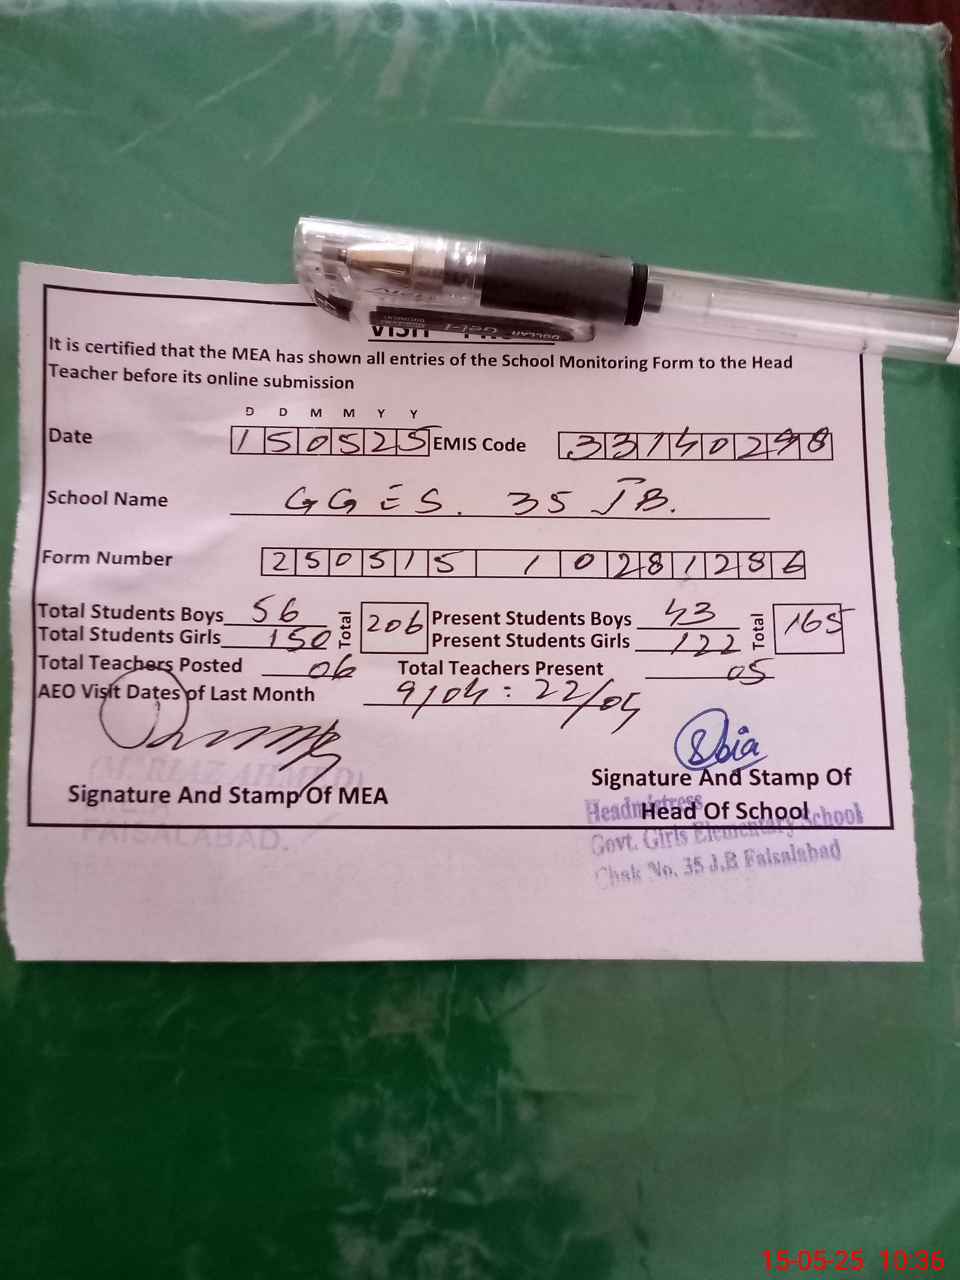 VISIT
It is certified that the MEA has shown all entries of the School Monitoring Form to the Head
Teacher before its online submission
D D M M Y Y
Date 150525 EMIS Code 33140298
School Name GGES. 35 JB.
Form Number 250515 1 0281286
Total Students Boys 56 Total 206 Present Students Boys 43 Total 165
Total Students Girls 150 Present Students Girls 122
Total Teachers Posted 06 Total Teachers Present 05
AEO Visit Dates of Last Month 9/04 : 22/04
(M. RIAZ AHMED)
Signature And Stamp Of MEA
FAISALABAD.
Sobia
Signature And Stamp Of
Head Of School
Headmistress
Govt. Girls Elementary School
Chak No. 35 J.B Faisalabad
DOLLAR Gel-1
15-05-25 10:36